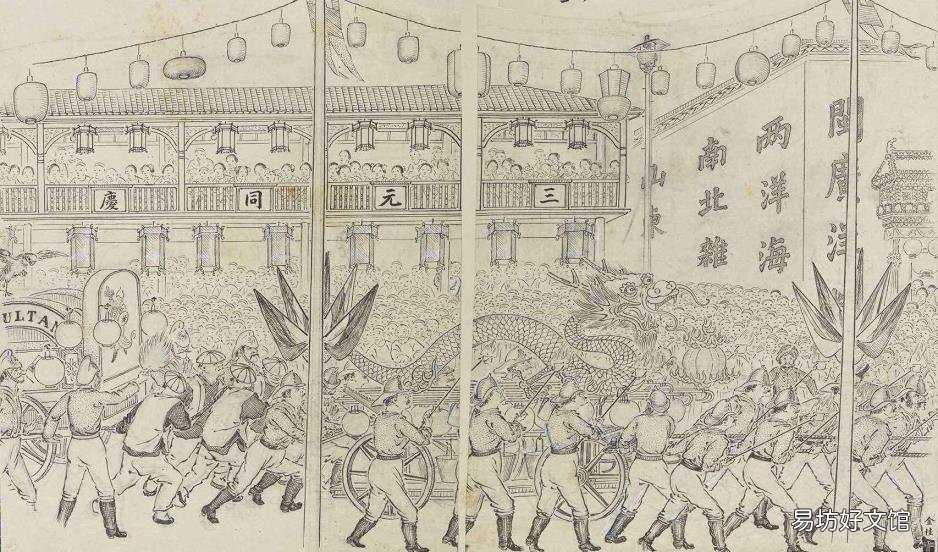 閩廣洋
两洋海
南北雜
山東
三元同慶
ULTAN
金桂
易坊好文馆